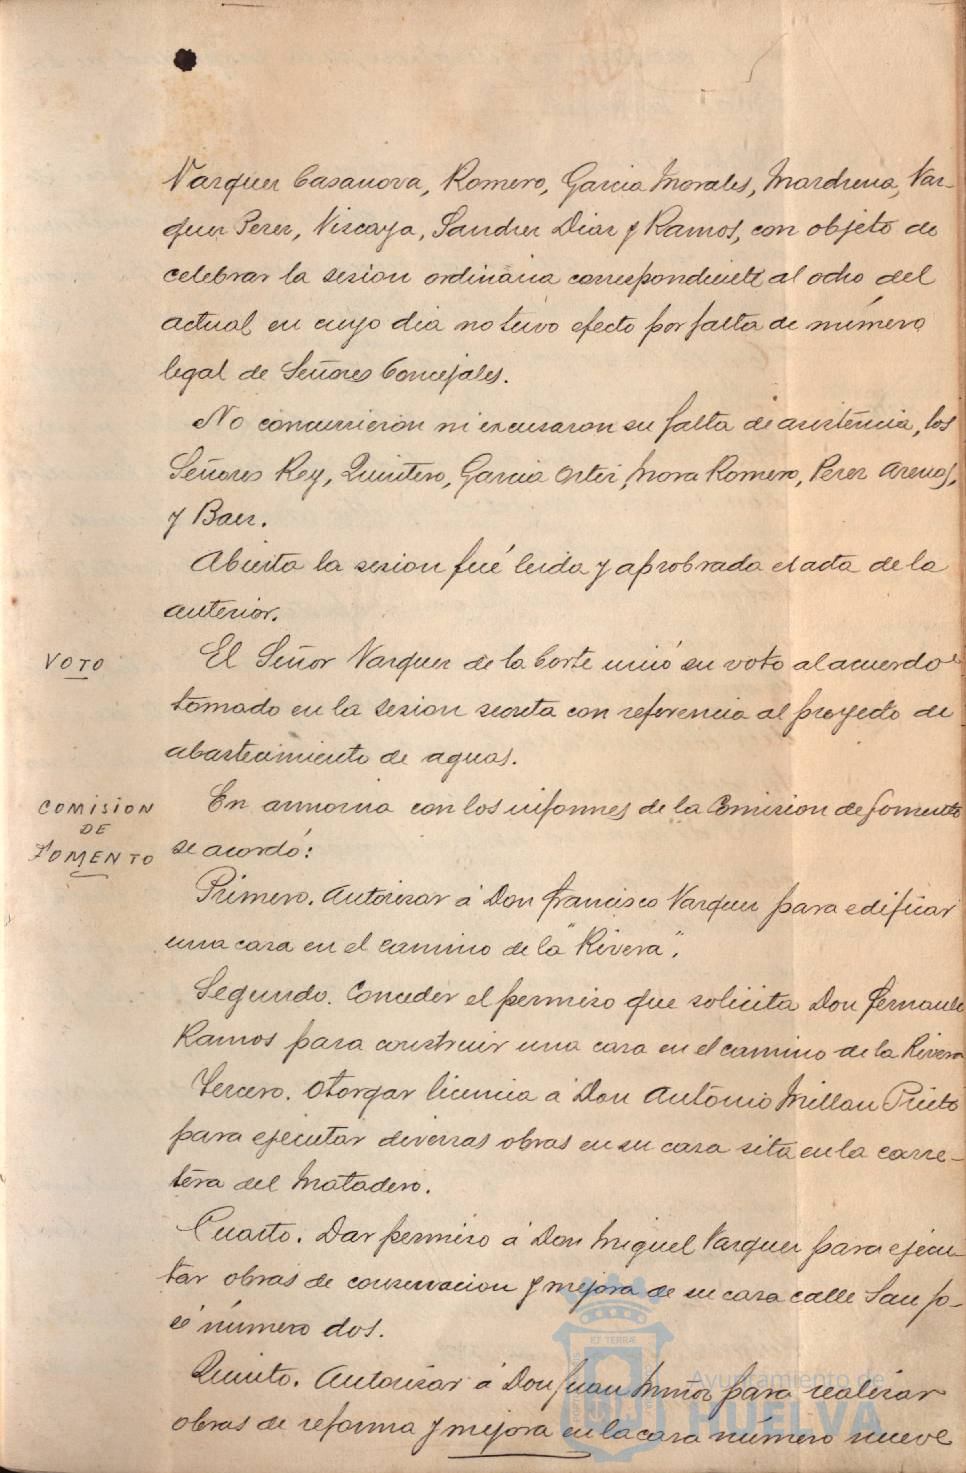 Vazquez Casanova, Romero, Garcia Morales, Mardrena, Vaz-
quez Perez, Viscaya, Sanchez Diaz y Ramos, con objeto de
celebrar la sesion ordinaria correspondiente al ocho del
actual en cuyo dia no tuvo efecto por falta de número
legal de Señores Concejales.
No concurrieron ni excusaron su falta de asistencia, los
Señores Rey, Quintero, Garcia Ortiz, Mora Romero, Perez Arenas,
y Baez.
Abierta la sesion fué leida y aprobada el acta de la
anterior.
VOTO
El Señor Vazquez de la Corte unió su voto al acuerdo
tomado en la sesion secreta con referencia al proyecto de
abastecimiento de aguas.
COMISION
DE
FOMENTO
En armonia con los informes de la Comision de fomento
se acordó:
Primero. Autorizar á Don Francisco Vazquez para edificar
una casa en el camino de la "Rivera".
Segundo. Conceder el permiso que solicita Don Fernando
Ramos para construir una casa en el camino de la Rivera
Tercero. Otorgar licencia á Don Antonio Millan Prieto
para ejecutar diversas obras en su casa sita en la carre-
tera del Matadero.
Cuarto. Dar permiso á Don Miguel Vazquez para ejecu-
tar obras de conservacion y mejora de su casa calle San Jo-
sé número dos.
Quinto. Autorizar á Don Juan Muñoz para realizar
obras de reforma y mejora en la casa número nueve
Ayuntamiento de
HUELVA